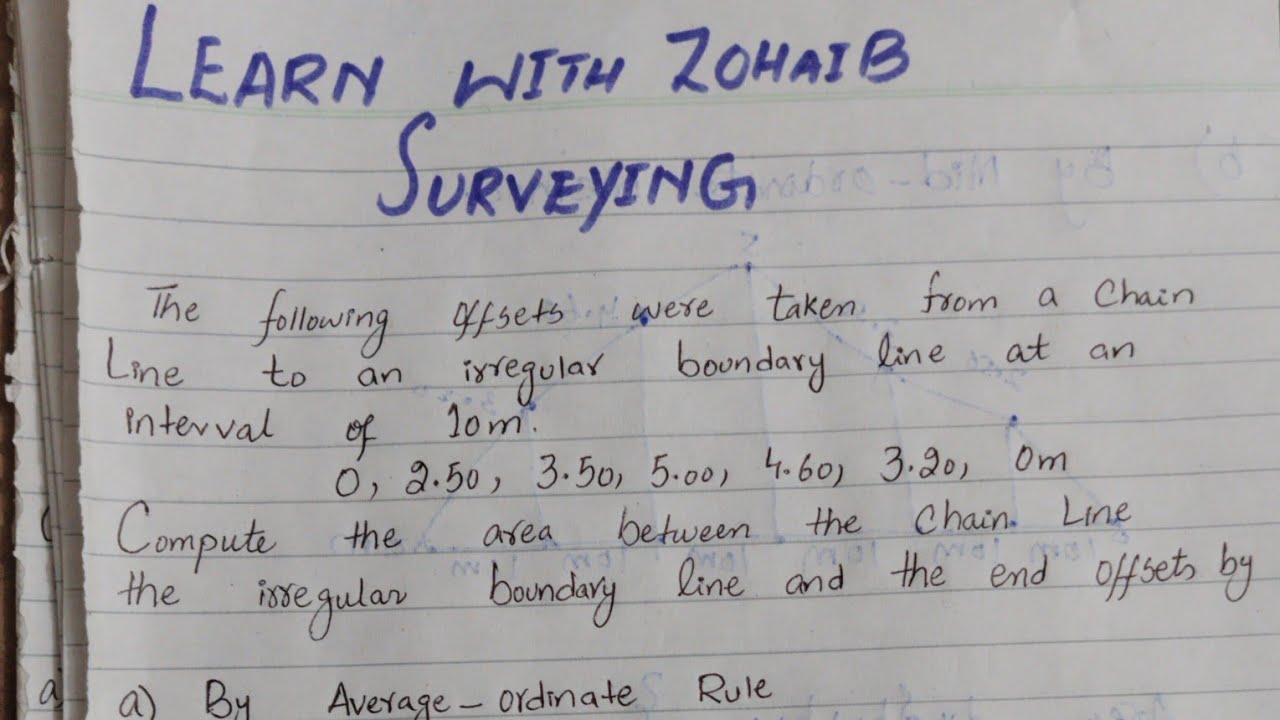 LEARN WITH ZOHAIB
SURVEYING
The following offsets were taken from a Chain
Line to an irregular boundary line at an
interval of 10m.
0, 2.50, 3.50, 5.00, 4.60, 3.20, 0m
Compute the area between the Chain Line
the irregular boundary line and the end offsets by
a) By Average-ordinate Rule
b) By Mid-ordinate
10m 10m 10m 10m